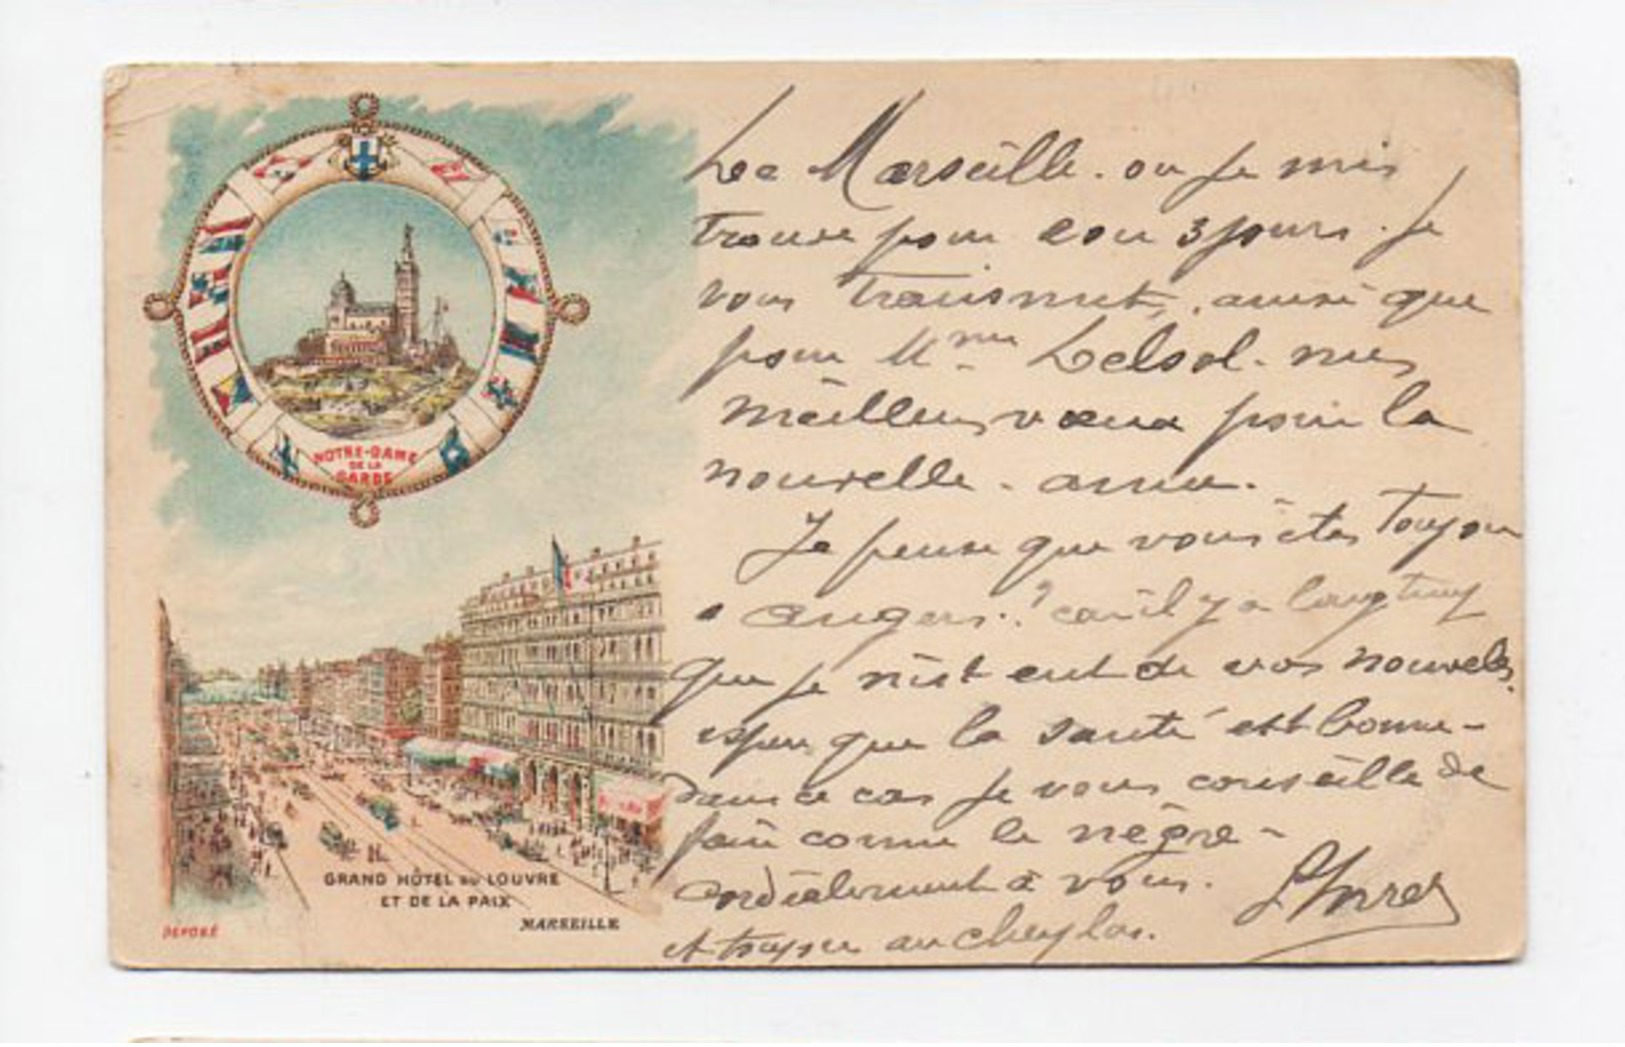 NOTRE-DAME
DE LA
GARDE
GRAND HÔTEL DU LOUVRE
ET DE LA PAIX
MARSEILLE
DEPOSÉ
De Marseille. ou je mis
trouve pour 3 jours. Je
vous transmet, ainsi que
pour Mme Delsol. mes
meilleurs vœux pour la
nouvelle. anné.
Je pense que vous êtes toujour
a angers..? car il y a longtemp
que je de vos nouvelles.
espere que la santé est bonne-
dans ce cas je vous conseille de
faire comme le nègre-
cordialement à vous.
et toujour au cheylas.